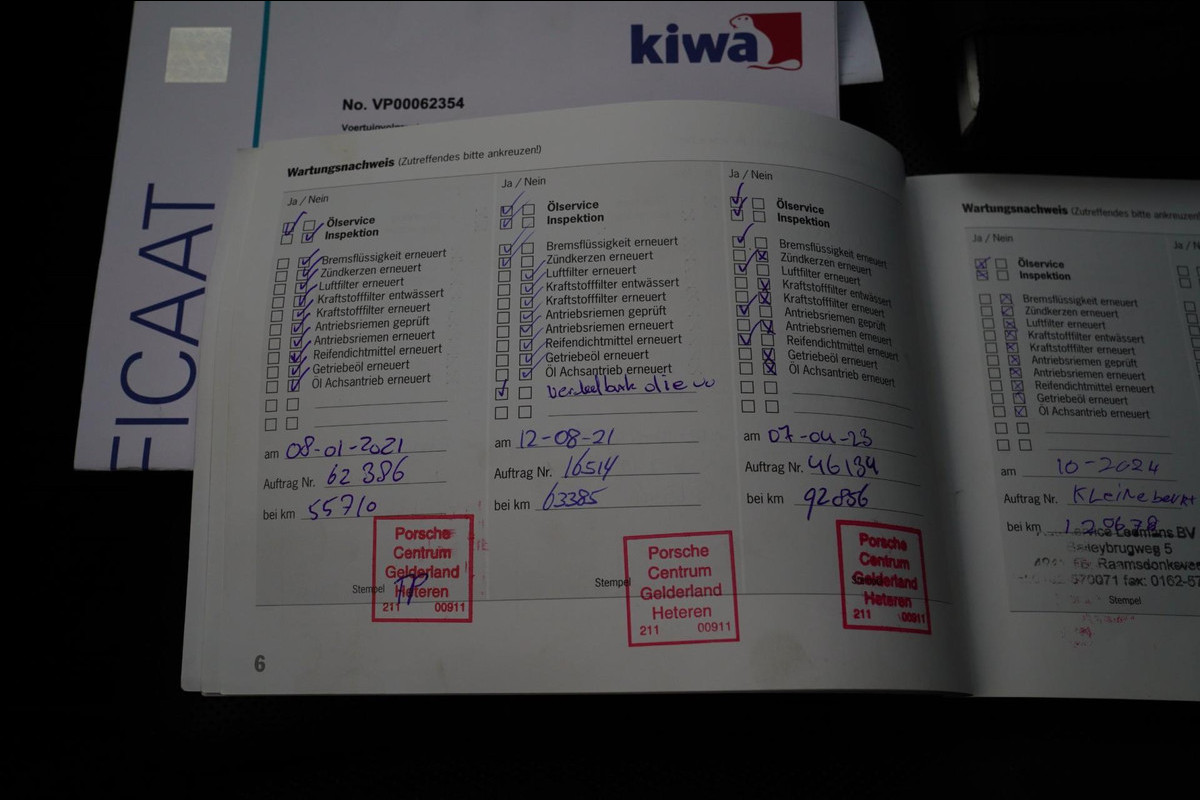 kiwa
No. VP00062354
FICAAT
Wartungsnachweis (Zutreffendes bitte ankreuzen!)
Ja / Nein
Ölservice
Inspektion
Bremsflüssigkeit erneuert
Zündkerzen erneuert
Luftfilter erneuert
Kraftstofffilter entwässert
Kraftstofffilter erneuert
Antriebsriemen geprüft
Antriebsriemen erneuert
Reifendichtmittel erneuert
Getriebeöl erneuert
Öl Achsantrieb erneuert
am 08-01-2021
Auftrag Nr. 62386
bei km 55710
Porsche
Centrum
Gelderland
Stempel Heteren
211 00911
6
Ja / Nein
Ölservice
Inspektion
Bremsflüssigkeit erneuert
Zündkerzen erneuert
Luftfilter erneuert
Kraftstofffilter entwässert
Kraftstofffilter erneuert
Antriebsriemen geprüft
Antriebsriemen erneuert
Reifendichtmittel erneuert
Getriebeöl erneuert
Öl Achsantrieb erneuert
am 12-08-21
Auftrag Nr. 16514
bei km 63385
Porsche
Centrum
Stempel Gelderland
Heteren
211 00911
Ja / Nein
Ölservice
Inspektion
Bremsflüssigkeit erneuert
Zündkerzen erneuert
Luftfilter erneuert
Kraftstofffilter entwässert
Kraftstofffilter erneuert
Antriebsriemen geprüft
Antriebsriemen erneuert
Reifendichtmittel erneuert
Getriebeöl erneuert
Öl Achsantrieb erneuert
am 07-04-23
Auftrag Nr. 46134
bei km 92856
Porsche
Centrum
Stempel Gelderland
Heteren
211 00911
Wartungsnachweis (Zutreffendes bitte ankreuzen
Ja / Nein
Ölservice
Inspektion
Bremsflüssigkeit erneuert
Zündkerzen erneuert
Luftfilter erneuert
Kraftstofffilter entwässert
Kraftstofffilter erneuert
Antriebsriemen geprüft
Antriebsriemen erneuert
Reifendichtmittel erneuert
Getriebeöl erneuert
Öl Achsantrieb erneuert
am 10-2024
Auftrag Nr. Kleine
bei km 120678
BV
5
Raamsdonksvee
570071 fax: 0162-57
Stempel
Ja /